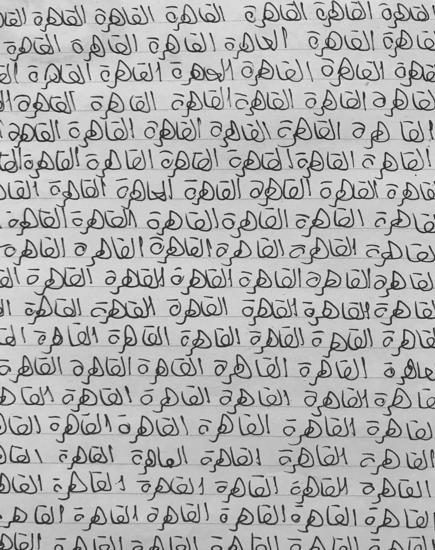 القاهرة القاهرة القاهرة القاهرة القاهرة القاهرة
القاهرة القاهرة القاهرة القاهرة القاهرة القاهرة
القاهرة القاهرة القاهرة القاهرة القاهرة القاهرة
القاهرة القاهرة القاهرة القاهرة القاهرة القاهرة
القاهرة القاهرة القاهرة القاهرة القاهرة القاهرة
القاهرة القاهرة القاهرة القاهرة القاهرة القاهرة
القاهرة القاهرة القاهرة القاهرة القاهرة القاهرة
القاهرة القاهرة القاهرة القاهرة القاهرة القاهرة
القاهرة القاهرة القاهرة القاهرة القاهرة القاهرة
القاهرة القاهرة القاهرة القاهرة القاهرة القاهرة
القاهرة القاهرة القاهرة القاهرة القاهرة القاهرة
القاهرة القاهرة القاهرة القاهرة القاهرة القاهرة
القاهرة القاهرة القاهرة القاهرة القاهرة القاهرة
القاهرة القاهرة القاهرة القاهرة القاهرة القاهرة
القاهرة القاهرة القاهرة القاهرة القاهرة القاهرة
القاهرة القاهرة القاهرة القاهرة القاهرة
القاهرة القاهرة القاهرة القاهرة القاهرة
القاهرة القاهرة القاهرة القاهرة القاهرة القاهرة
القاهرة القاهرة القاهرة القاهرة القاهرة القاهرة